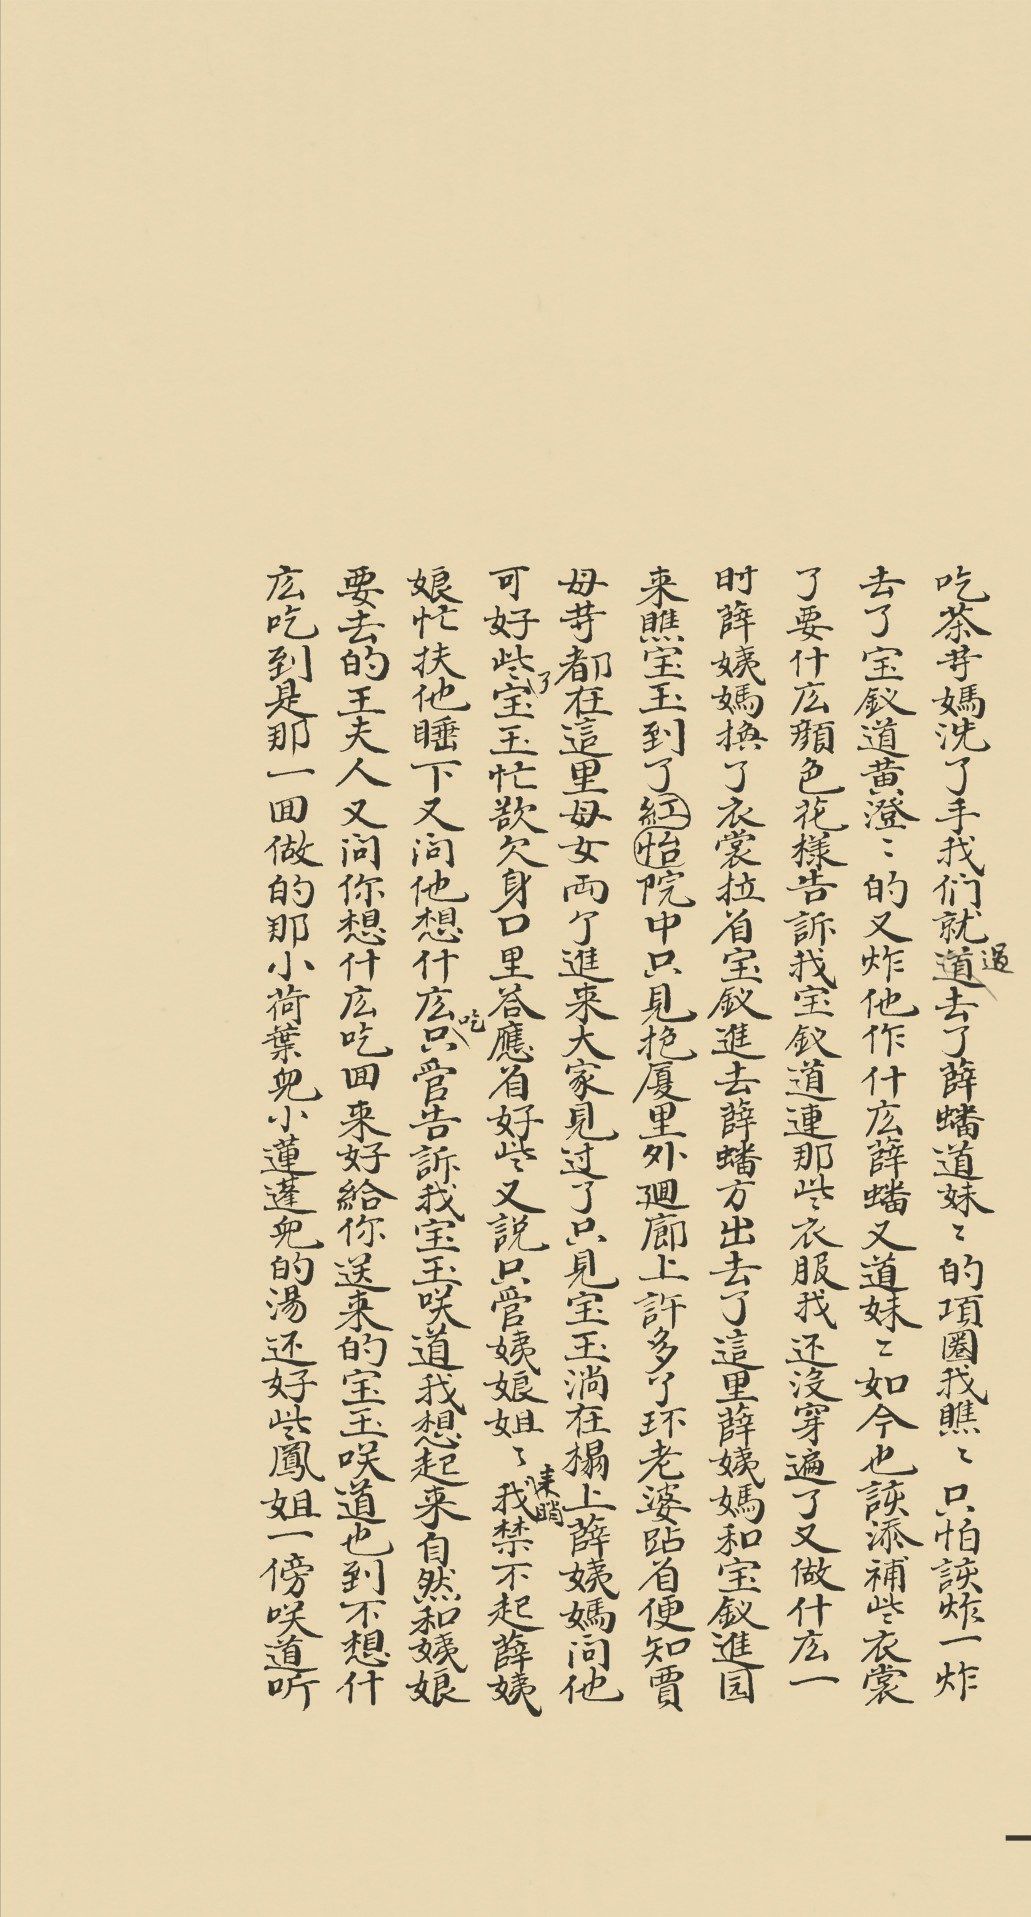 吃茶等媽洗了手我们就道過去了薛蟠道妹〻的項圈我瞧〻只怕該炸一炸
去了宝釵道黄澄〻的又炸他作什庅薛蟠又道妹〻如今也該添補些衣裳
了要什庅顔色花樣告訴我宝釵道連那些衣服我还没穿遍了又做什庅一
时薛姨媽換了衣裳拉着宝釵進去薛蟠方出去了這里薛姨媽和宝釵進园
来瞧宝玉到了紅怡院中只見抱厦里外廻廊上許多丫环老婆跕着便知賈
母等都在這里母女両个進来大家見过了只見宝玉淌在榻上薛姨媽问他
可好些了宝玉忙欲欠身口里荅應着好些又説只管姨娘姐〻来瞧我禁不起薛姨
娘忙扶他睡下又问他想什庅吃只管告訴我宝玉咲道我想起来自然和姨娘
要去的王夫人又问你想什庅吃囬来好給你送来的宝玉咲道也到不想什
庅吃到是那一囬做的那小荷葉兒小蓮蓬兒的湯还好些鳳姐一傍咲道听